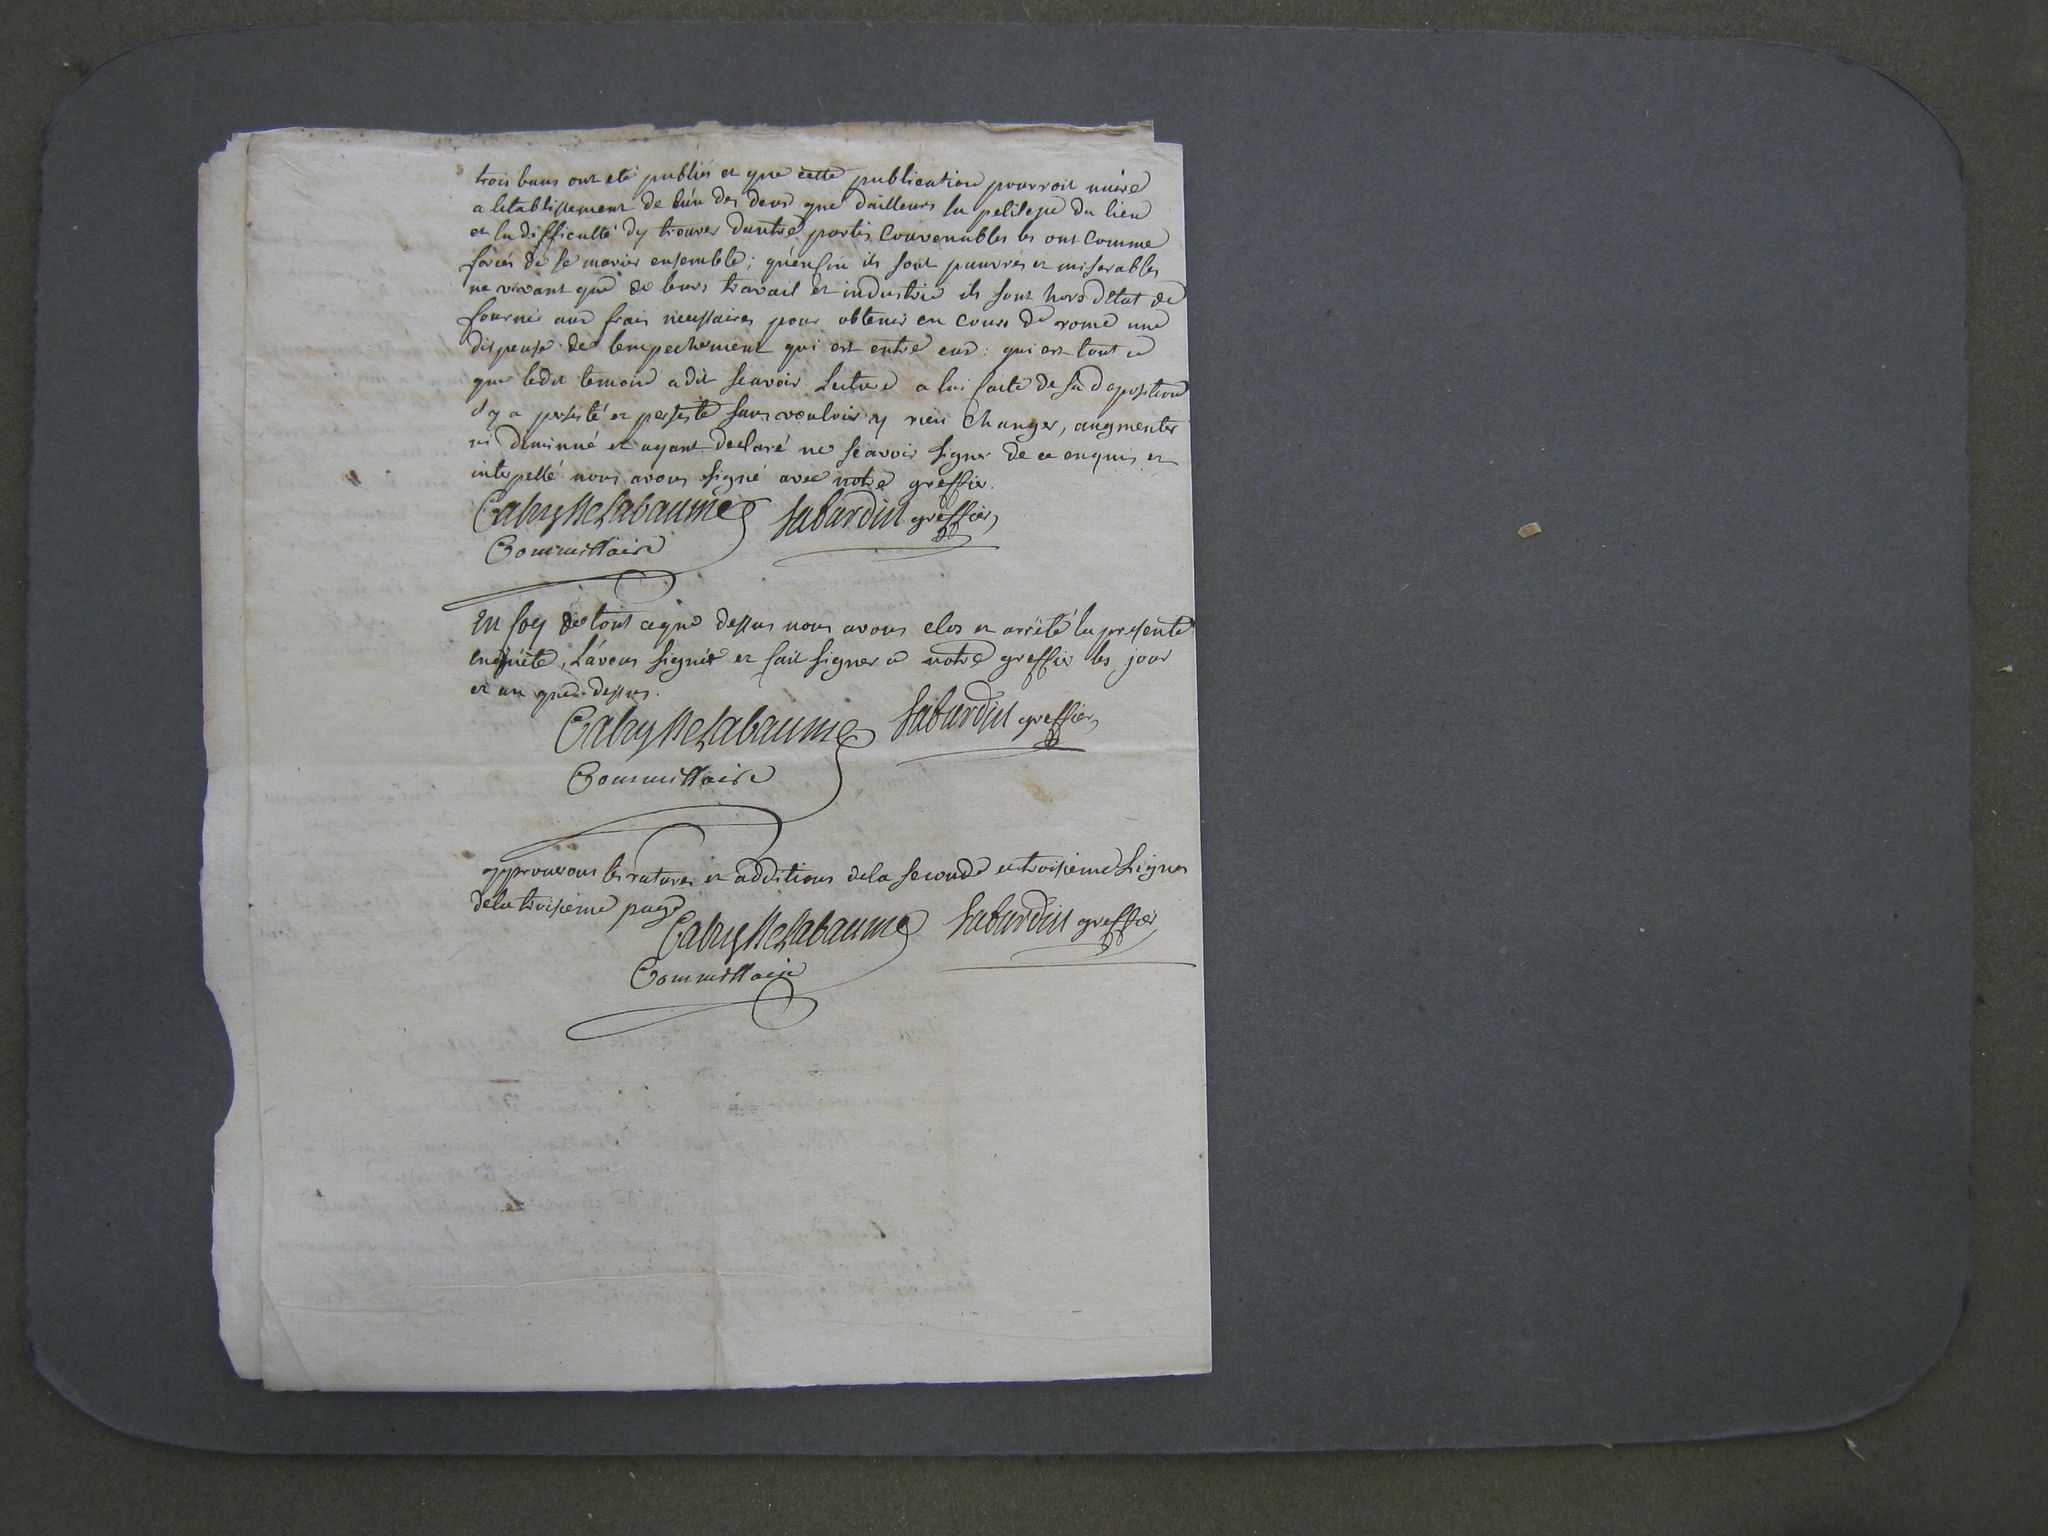 trois bans ont eté publiés et que cette publication pourroit nuire
a letablissement de lun des deux que dailleurs la petitesse du lieu
et la difficulté dy trouver dautre partis Convenables les ont comme
forcés de se marier ensemble; quenfin ils sont pauvres et miserables
ne vivant que de leurs travail et industrie ils sont hors detat de
fournir aux frais necessaires pour obtenir en cours de rome une
dispense de lempechement qui est entre eux: qui est tout ce
que ledit temoin a dit scavoir Lecture a lui faite de sa deposition
il y a persisté et persiste sans vouloir y rien Changer, augmenter
ni diminué et ayant declaré ne scavoir signer de ce enquis et
interpellé nous avons signé avec notre greffier.
Cabry Delabaume Sabardin greffier
Commissaire
En foy de tout ceque dessus nous avons clos et arrêté la presente
enquête, Lavons signée et fait signer a notre greffier les jour
et an que dessus.
Cabry Delabaume Sabardin greffier
Commissaire
approuvons les ratures et additions dela seconde et troisieme Lignes
dela troisieme page
Cabry Delabaume Sabardin greffier
Commissaire